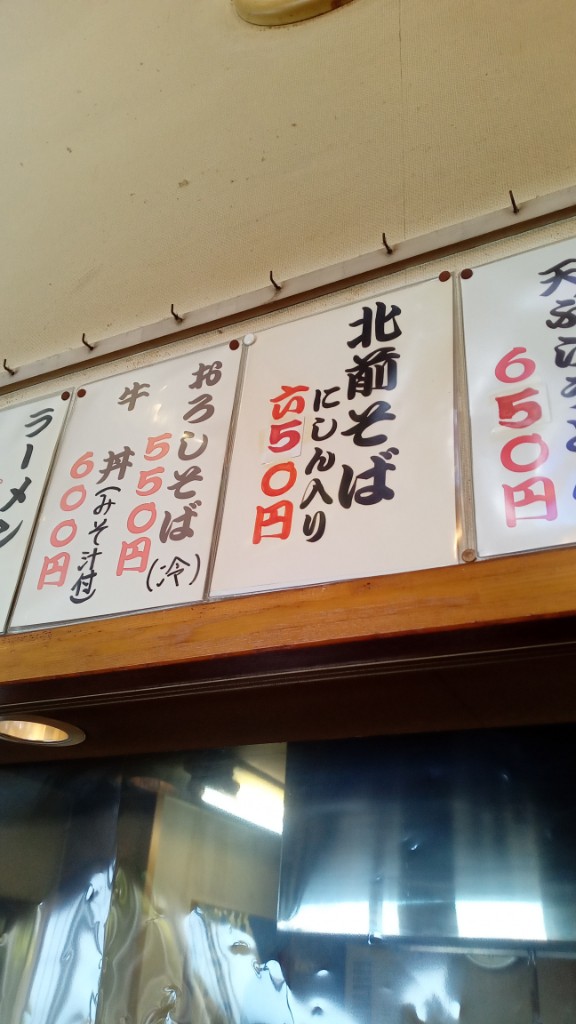 650円
北前そば
にしん入り
六50円
おろしそば(冷)
550円
牛丼(みそ汁付)
600円
ラーメン